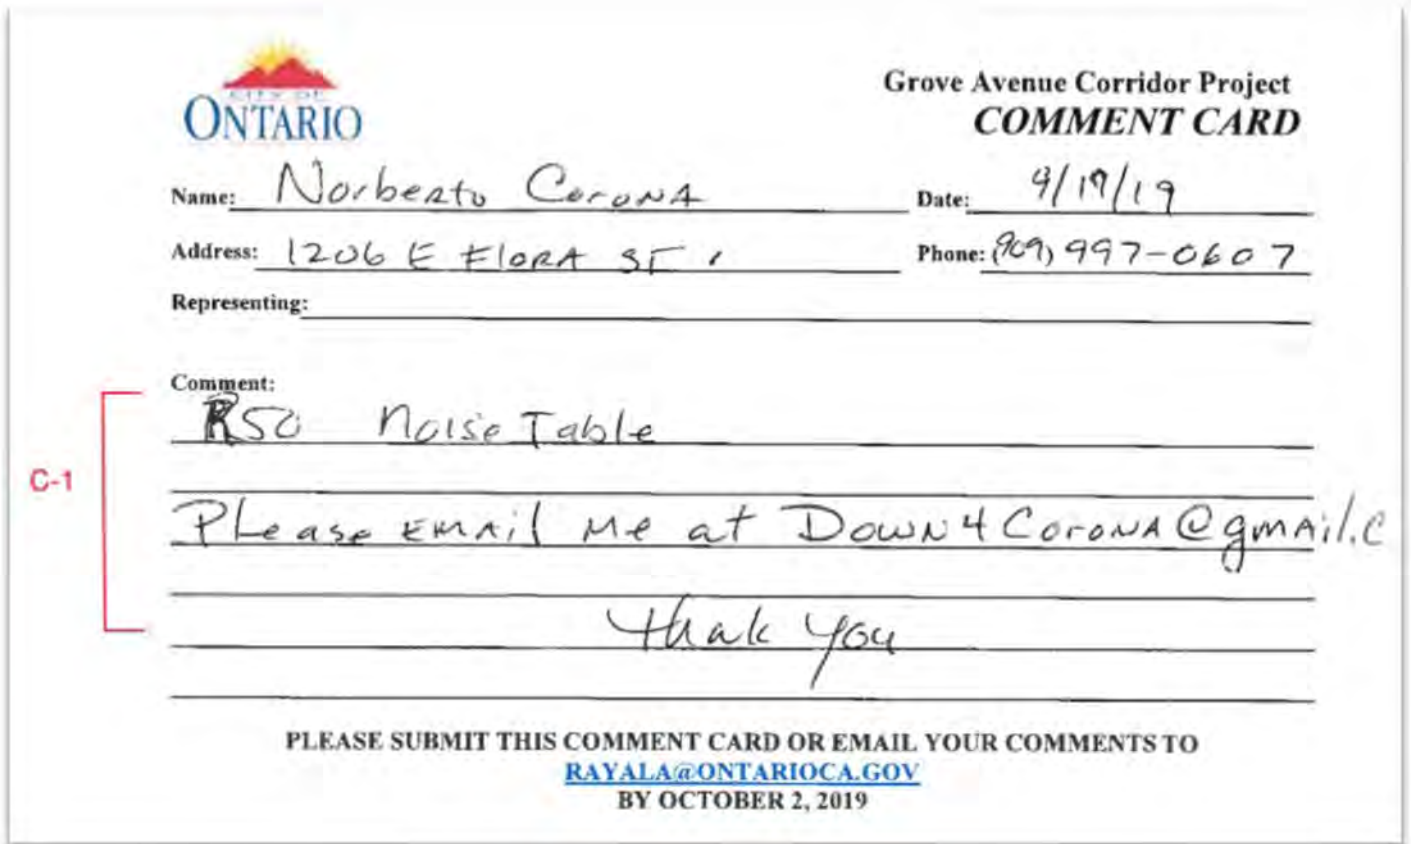 CITY OF
ONTARIO
Grove Avenue Corridor Project
COMMENT CARD
Name: Norberto Corona
Date: 9/19/19
Address: 1206 E Flora St.
Phone: (909) 997-0607
Representing:
Comment:
R50 Noise Table
C-1
Please Email Me at Down4Corona@gmail.c
thak you
PLEASE SUBMIT THIS COMMENT CARD OR EMAIL YOUR COMMENTS TO
RAYALA@ONTARIOCA.GOV
BY OCTOBER 2, 2019